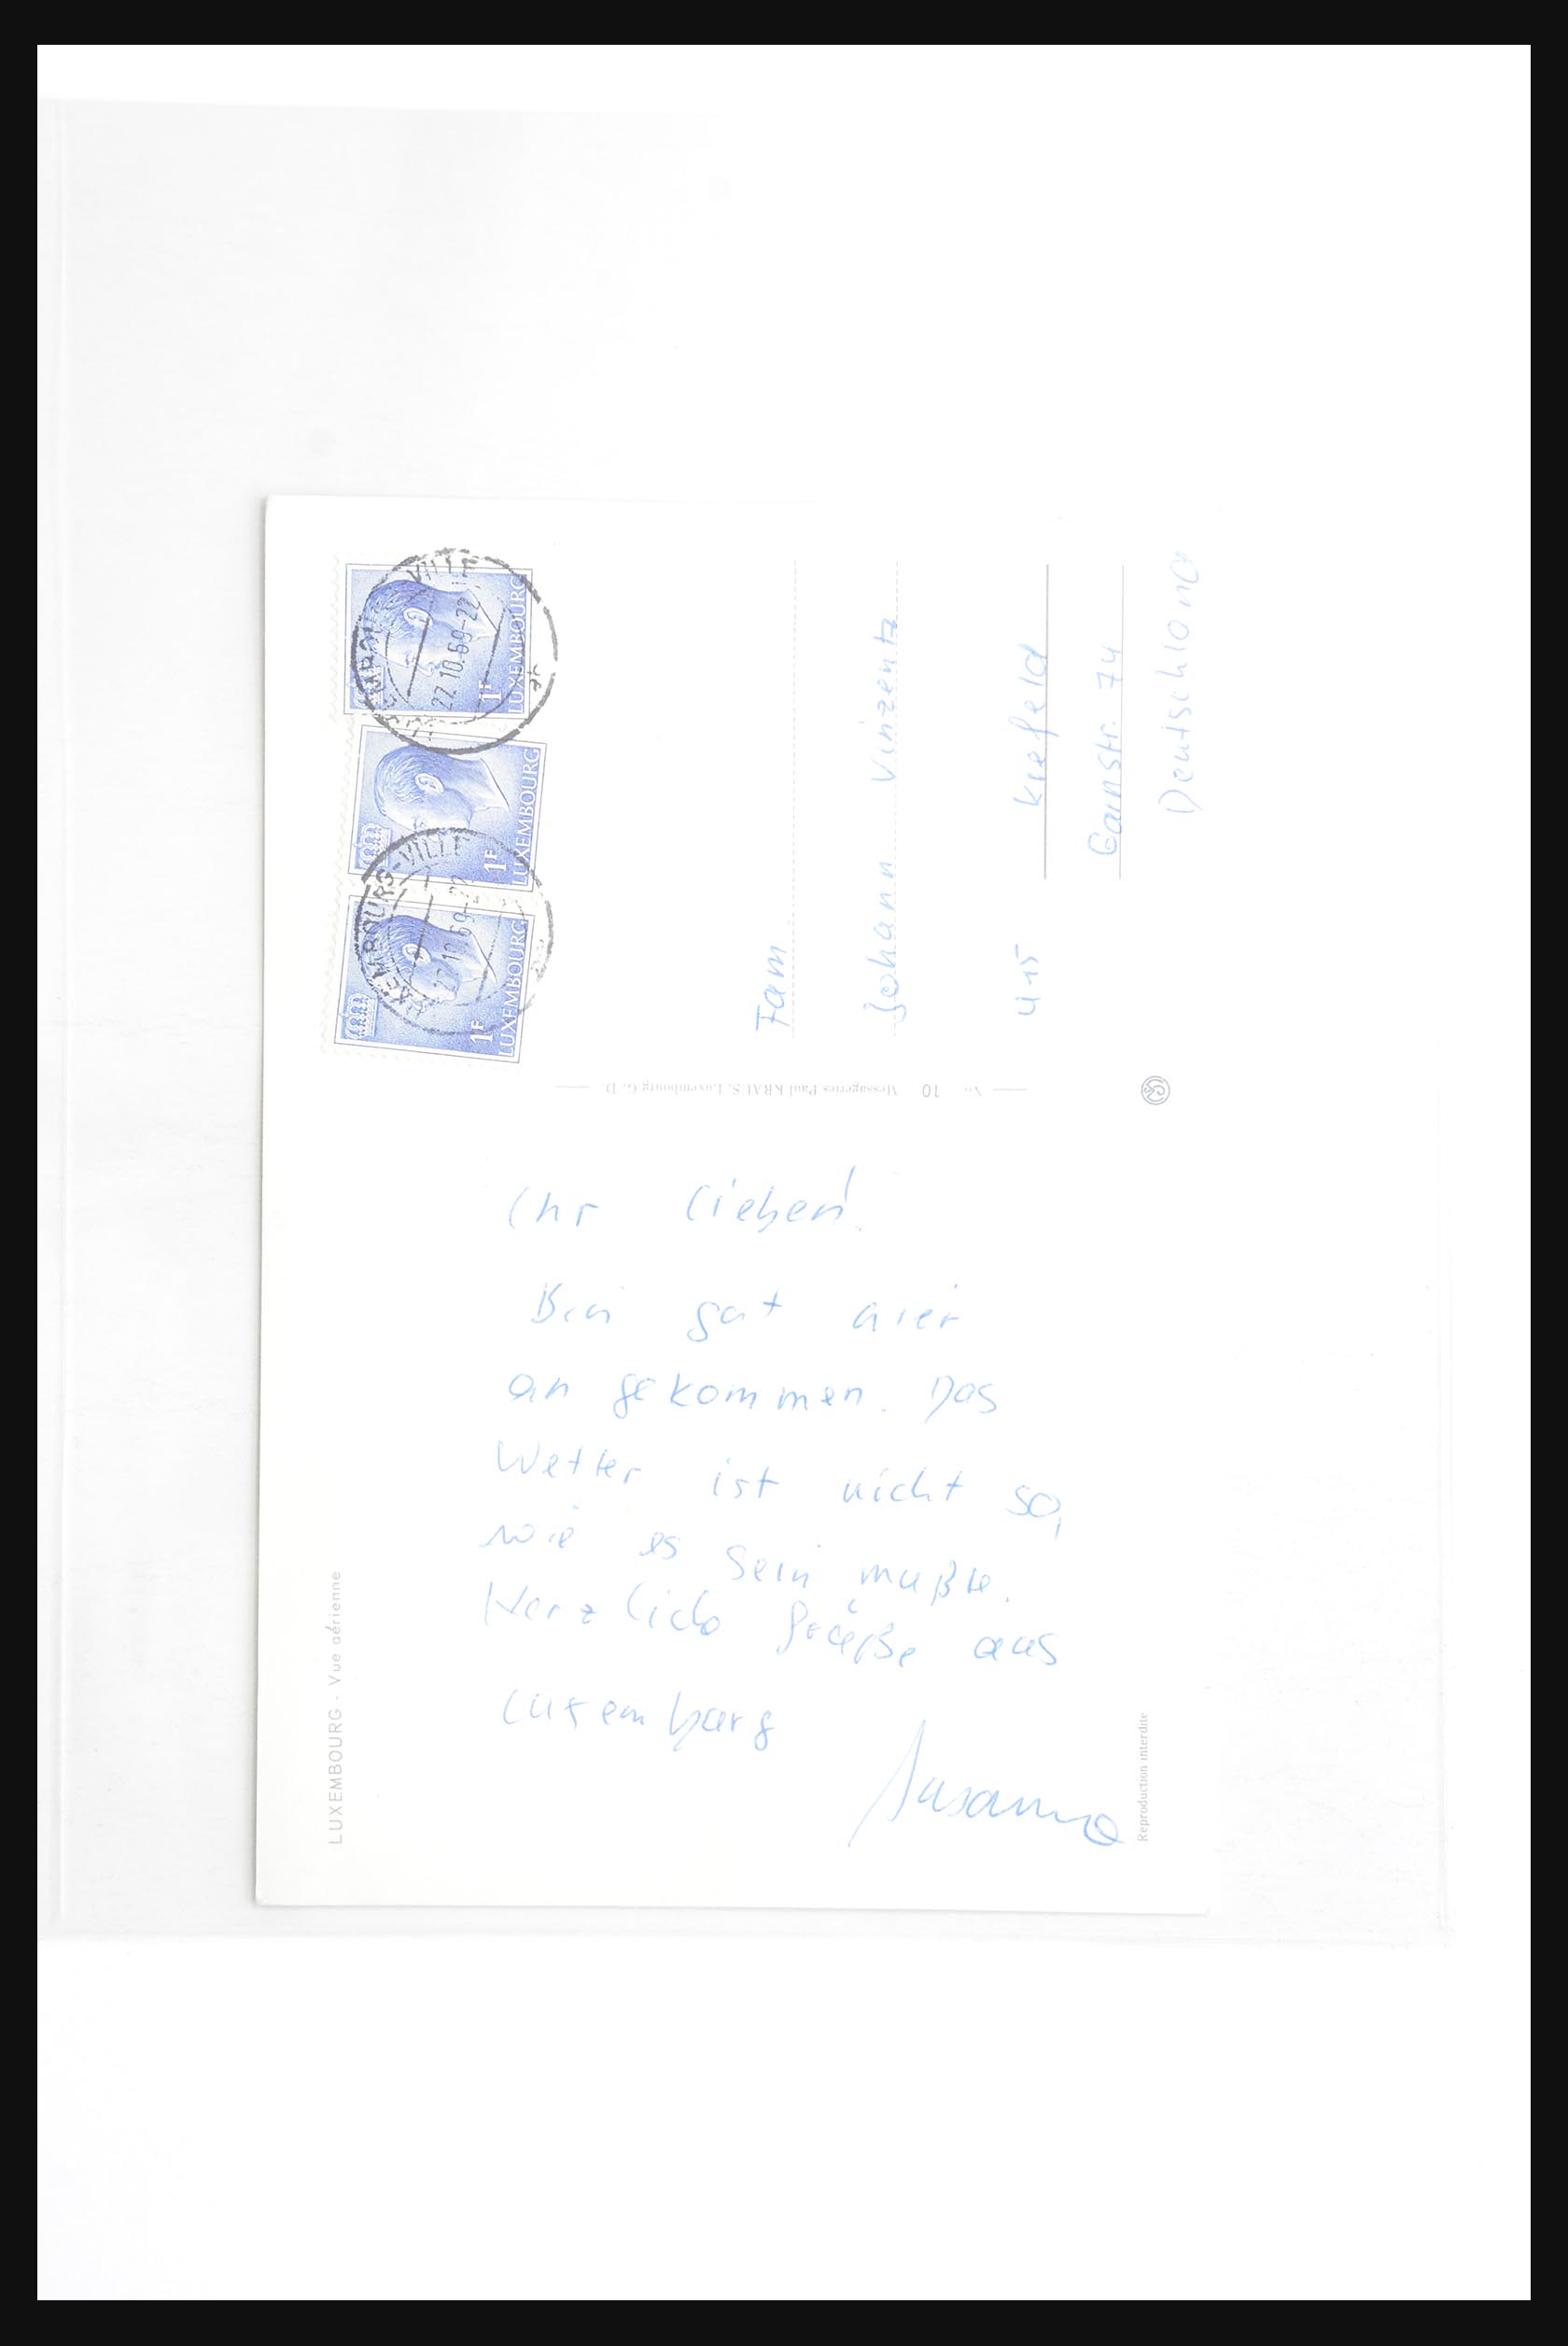 LUXEMBOURG-VILLE
22.10.69-22
1F
LUXEMBOURG
1F
LUXEMBOURG
LUXEMBOURG-VILLE
10.69-22
1F
LUXEMBOURG
Fam
Johann Vinzentz
415 Krefeld
Garnstr. 74
Deutschland
No 10 Messageries Paul KRAUS, Luxembourg G. D.
Ihr lieben!
Bin gut hier
an gekommen. Das
Wetter ist nicht so,
wie es sein mußte.
Herzlich Grüße aus
Luxemburg
Susanne
LUXEMBOURG - Vue aérienne
Reproduction interdite